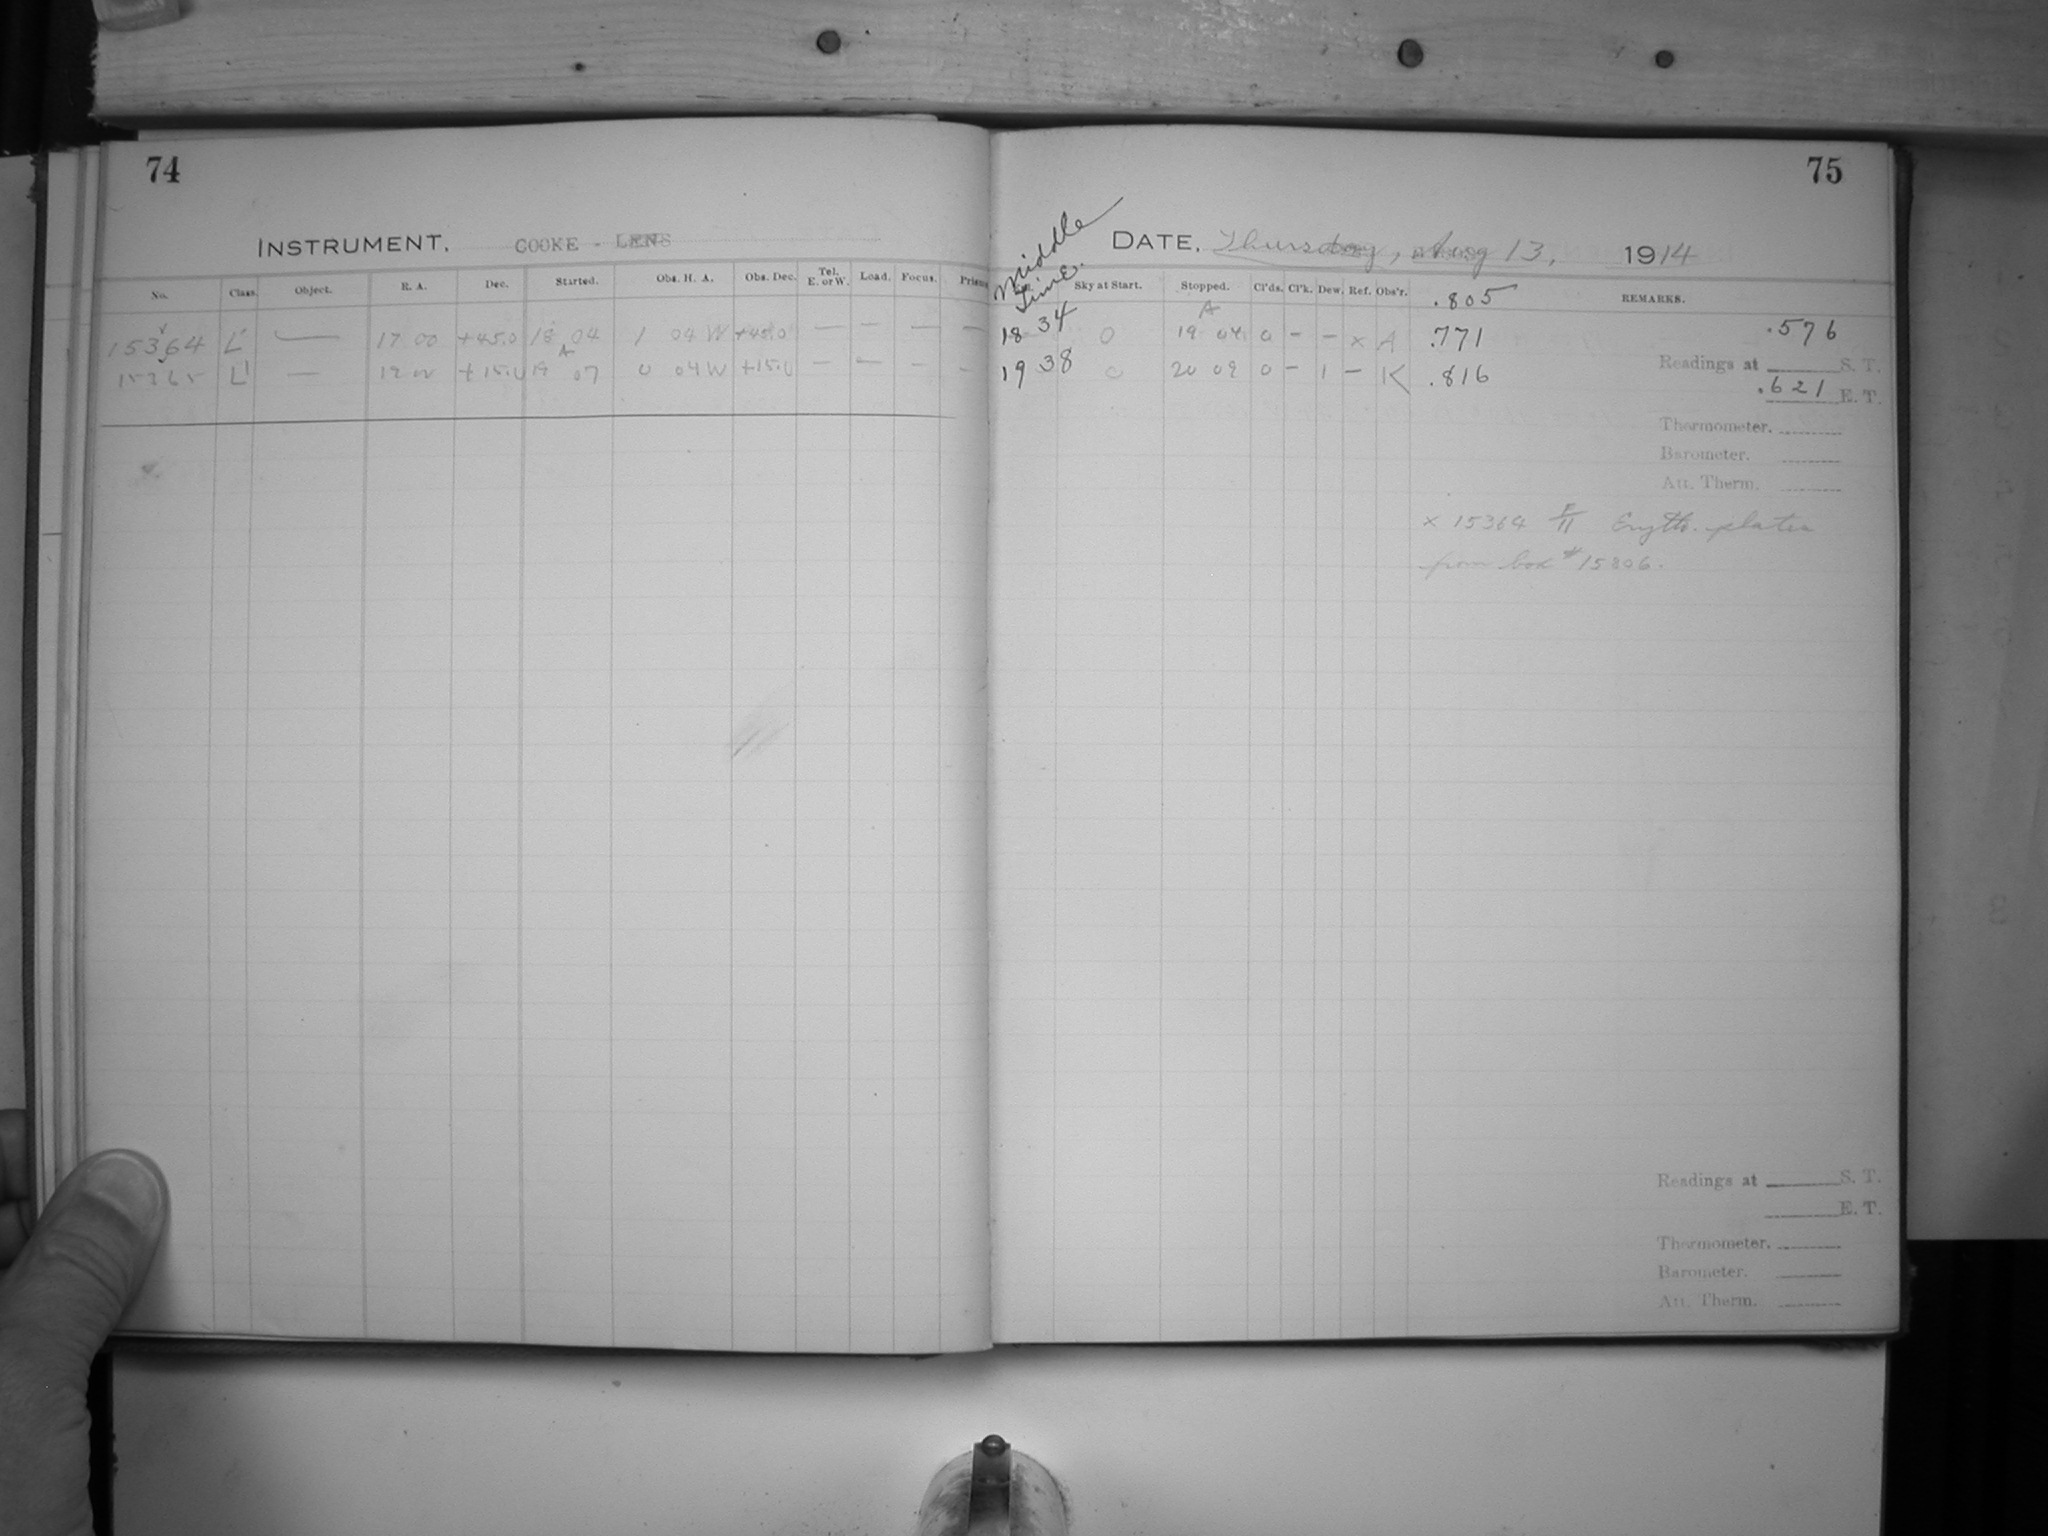 74
INSTRUMENT. COOKE - LENS
No. Class. Object. R. A. Dec. Started. Obs. H. A. Obs. Dec. Tel. E. or W. Load. Focus. Prism
15364 L — 17 00 +45.0 18 04 1 04 W +45.0 — — — —
15365 L 19 00 +15.0 19 07 0 04 W +15.0 — — — —
75
Middle Time.
DATE. Thursday, Aug 13, 1914
Sky at Start. Stopped. Cl'ds. Cl'k. Dew. Ref. Obs'r. .805 REMARKS.
18 34 0 19 04 0 – – x A .771 .576
Readings at S. T.
19 38 0 20 09 0 – 1 – K .816 .621 E. T.
Thermometer.
Barometer.
Att. Therm.
x 15364 F/11 Eryth. plates
from box # 15306.
Readings at S. T.
E. T.
Thermometer.
Barometer.
Att. Therm.